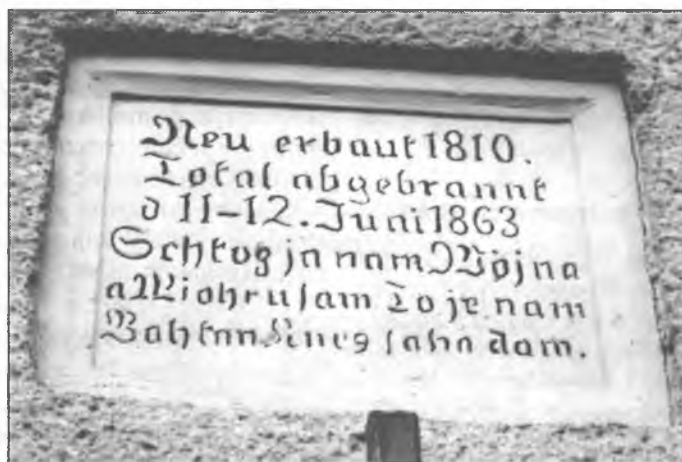 Neu erbaut 1810.
Total abgebrannt
d 11-12. Juni 1863
Schtog ja nam Wöjna
a Wiohru sam To je nam
Bah tan saha dam.